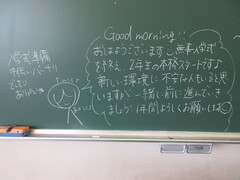 Good morning!!
おはようございます。無事入学式
を終え、2年生の本格スタートですね
新しい環境に不安な人もいると思
いますが、一緒に前に進んでいき
ましょう!1年間よろしくお願いします
入学式準備
手伝いバッチリ
でした
ありがとう